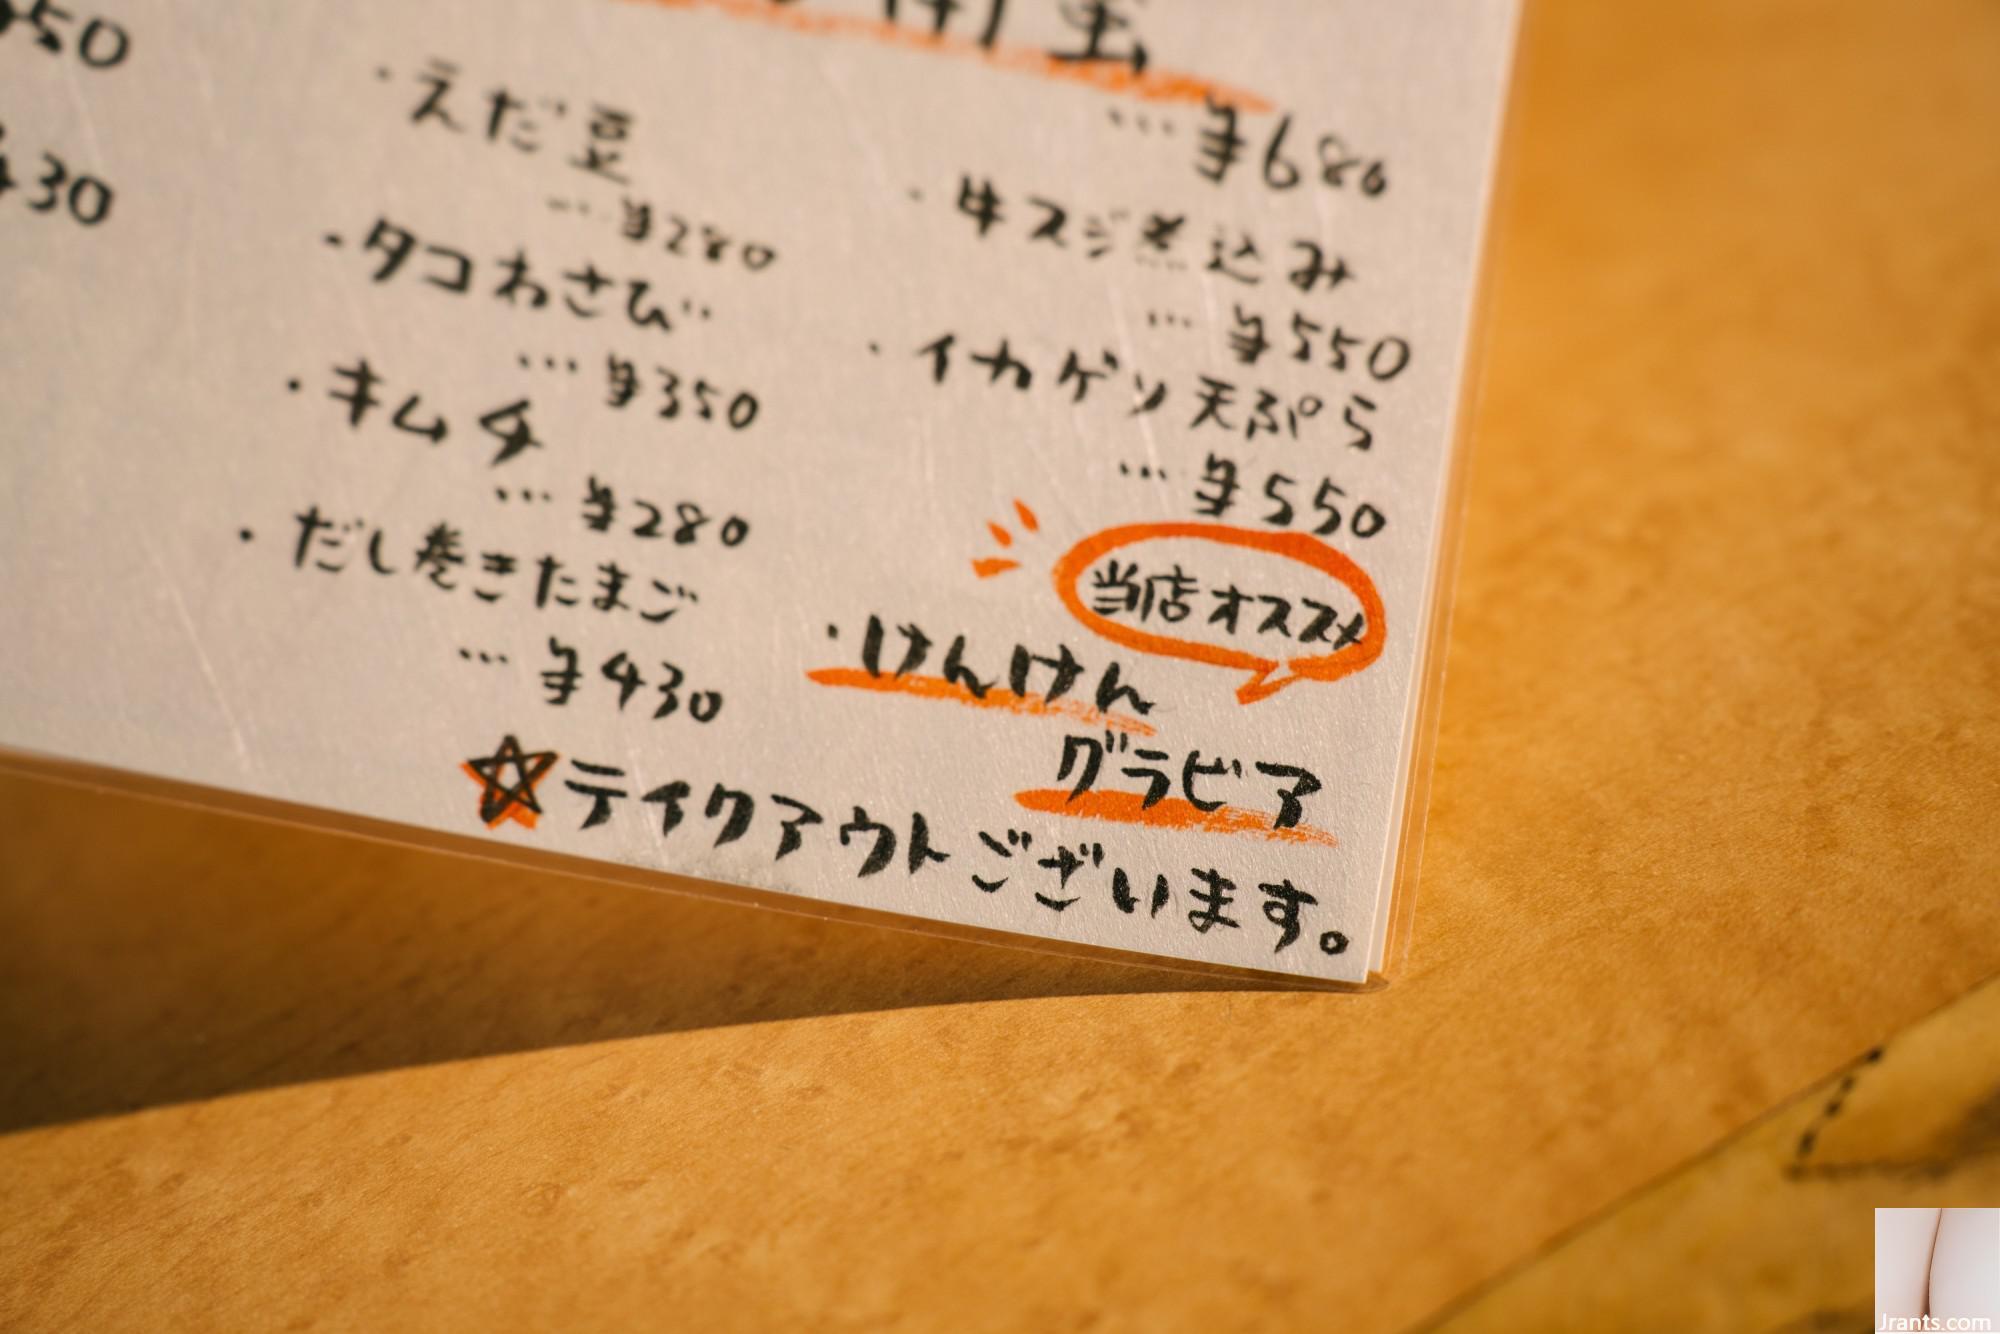 50
430
・えだ豆
… ¥280
・タコわさび
… ¥350
・キムチ
… ¥280
・だし巻きたまご
… ¥430
… ¥680
・牛スジ煮込み
… ¥550
・イカゲソ天ぷら
… ¥550
当店オススメ
・けんけん
グラビア
☆テイクアウトございます。
Jrants.com